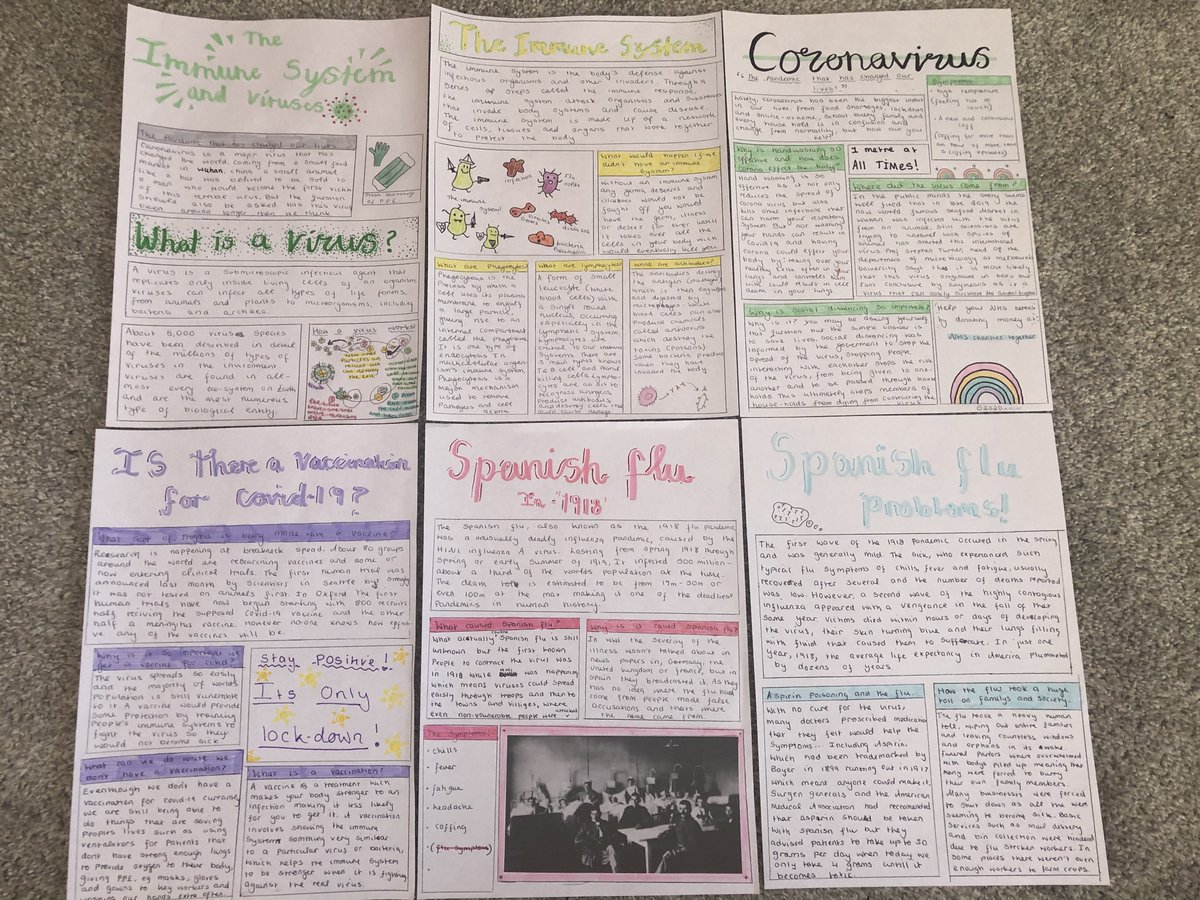 The
Immune System
and Viruses
The Pandemic that has changed our lives
Coronavirus is a major virus that has
changed the world coming from a small food
market in Wuhan, china a small animal
like a bat was believed to be sold to
a man who would become the first victim
of this dreaded virus. But the question
should also be asked has this virus
been around longer than we think
Mass shortages
of P.P.E
What is a virus?
A virus is a submicroscopic infectious agent that
replicates only inside living cells of an organism.
Viruses infect all types of life forms,
from animals and plants to microorganisms, including
bacteria and archaea.
About 5,000 virus species
have been described in detail
of the millions of types of
viruses in the environment
viruses are found in al-
most every eco-system on Earth
and are the most numerous
type of biological entity.
How a virus works!
The Immune System
The immune system is the body's defense against
infectious organisms and other invaders. Through a
series of steps called the immune response,
the immune system attack organisms and substances
that invade body systems and cause disease.
The immune system is made up of a network
of cells, tissues and organs that work together
to protect the body
infection
Flu
colds
The immune
System!
diseases
bacteria
What would happen if we
didn't have an immune
system?
Without an immune system
any germs, deseres and
illnesses would not be
faught off you would
have the germ, illness
or desere for ever untill
it takes over all the
cells in your body wich
would eventually kill you.
What are Phagocytes?
Phagocytosis is the
process by which a
cell uses its plasma
membrane to engulf
a large particle,
giving rise to an
internal compartment
called the phagosome
It is one type of
endocytosis In
multicellular organ-
ism's immune system
Phagocytosis is a
major mechanism
used to remove
Pathogens and cell
debris
What are lymphocytes?
A form of small
leucocyte (white
blood cells) with
a single round
nucleus, occurring
especially in the
Lymphatic System.
Lymphocytes are
immune
Systems There are
main types known
cell and natral
killing cells
What are antibodies?
The antibodies destroy
the antigen (pathogen)
which is then engulfed
and digested by
macrophages. White
blood cells can also
produce chemicals
called antitoxins
which destroy the
toxins (poisons)
Some bacteria produce
when they have
invaded the body
Coronavirus
"The Pandemic that has changed our
lives!"
Lately, coronavirus has been the biggest impact
in our lives. From food shortages, lockdown
and online-at-home, school every family and
every house hold is in confusion and
change from normality, but how can you
help?
Symptoms
- high temperature
(feeling hot to
touch)
- A new and continuous
coff
(coffing for more than
an hour or more than
3 coffing episodes)
Why is handwashing so
affective and how does
corona effect the body?
Hand washing is so
effective as it not only
reduces the spread of
corona virus but also
kills other infections that
can harm your respiratory
system But not washing
your hands can result in
Covid-19 and having
corona could effect your
body by taking over your
healthy cells often in your
lungs and converts them
wich could result in cell
death in your lungs
1 metre at
All TIMES!
Where did the virus come from?
In the public minds many
were fixed that in late 2019 in the
now world famous seafood market in
Wuhan was infected with the virus
from an animal, still scientists are
trying to unravel with pricise
animal has started this international
crisis. Prof Stephen Turner, head of the
department of microbiology at melbourne
University Says it is most likely
that this virus originated in bats my
isnt conclusive by anymeans as it a
virus that can
Why is social distancing so important?
Why is it? you may be asking yourself
this question but the simple answer is
to save lives. Social distancing was
informed by the government to stop the
spread of the virus, stopping people
interacting with eachother stops the risk
of the virus from being given to one-
another and to be passed through house
holds This ultimately stops members of
house-holds from dying from contracting the
virus
Help your NHS heroes
by donating money at:
NHS charities together
©2020
IS there a vaccination
for covid-19?
What sort of Progress is being made with a vaccine?
Research is happening at breakneck speed. About 80 groups
around the world are researching vaccines and some or
now entering clinical trials. the first human trial was
announced last month by scientists in Seattle but strangly
it was nor tested on animals first. In Oxford the first
human trials have now begun starting with 800 recruits
half reciving the supposed covid-19 vaccine and the other
half a meningitus vaccine. However no-one knows how effect-
ive any of the vaccines will be.
Why is it so important we
get a vaccine for covid?
The virus spreads so easily
and the majority of world's
Population is still vulnerble
to it. A vaccine would provide
some protection by training
People's immune systems to
fight the virus so they
would not become sick.
Stay Positive!
Its Only
lock-down!
What can we do while we
don't have a vaccination?
Eventhough we don't have a
vaccination for covid-19 currantly,
we are still being able to
do things that are saving
Peoples lives such as using
ventalators for patients that
dont have strong enough lungs
to provide oxygen to their body,
giving PPE, eg masks, gloves
and gowns to key workers and
washing our hands extra often.
What is a vaccination?
A vaccine is a treatment which
makes your body stronger to an
infection making it less likely
for you to get it. A vaccination
involves showing the immune
System somming very similar
to a particular virus or bacteria,
which helps the immune System
to be stronger when it is fighting
against the real virus.
Spanish flu
In '1918'
The Spanish flu, also known as the 1918 flu pandemic
was a unusually deadly influenza pandemic, caused by the
H1N1 influenza A virus. Lasting from spring 1918 through
Spring or early Summer of 1919, It infected 500 million-
about a third of the worlds population at the time.
The death toll is estimated to be from 17m-50m or
even 100m at the max making it one of the deadliest
Pandemics in human history.
What caused Spanish flu?
What acctually caused Spanish flu is still
unknown but the first known
People to contract the virus was
in 1918 while was happening
which means viruses could spread
easily through troops and then to
the towns and villiges, where
even non-vulnerable people were
The Symptoms:
- chills
- fever
- fatigue
- headache
- coffing
- (flu symptoms)
Why is it called Spanish flu?
In WWI the severity of the
illness wasn't talked about in
news papers in, Germany, the
united kingdom or france, but in
spain they broadcasted it. As they
has no idea, where the flu had
come from people made false
accusations and thats where
the name came from
Spanish flu
problems!
The first wave of the 1918 pandemic occured in the spring
and was generally mild. The sick, who experianced such
typical flu symptoms of chills, fever and fatigue, usually
recovered after several and the number of deaths reported
was low. However, a second wave of the highly contagious
influenza appeared with a vengeance in the fall of that
same year. Victims died within hours or days of developing
the virus, their skin turning blue and their lungs filling
with fluid that caused them to suffercate. In just one
year, 1918, the average life expectincy in America plummeted
by dozens of years.
Aspirin Poisoning and the flu.
With no cure for the virus,
many doctors proscribed medication
that they felt would help the
symptoms... Including Aspirin,
which had been trademarked by
Bayer in 1899 running out in 1917
which means anyone could make it.
Surgen generals and the American
Medical Association had recomended
that asparin should be taken
with spanish flu but they
advised patients to take up to 30
grams per day when today we
only take 4 grams until it
becomes toxic
How the flu took a huge
toll on familys and society.
The flu toook a heavy human
toll, wiping out entire families
and leaving countless windows
and orphains in its awake.
Funeral parlors where overwhelmed
with bodys piled up meaning that
many were forced to burry
their own family members.
Many businesses were forced
to shut down as all the were
seeming to become sick. Basic
Services such as mail delivery
and bin collection were hindered
due to flu stricken workers. In
some places there weren't even
enough workers to farm crops.